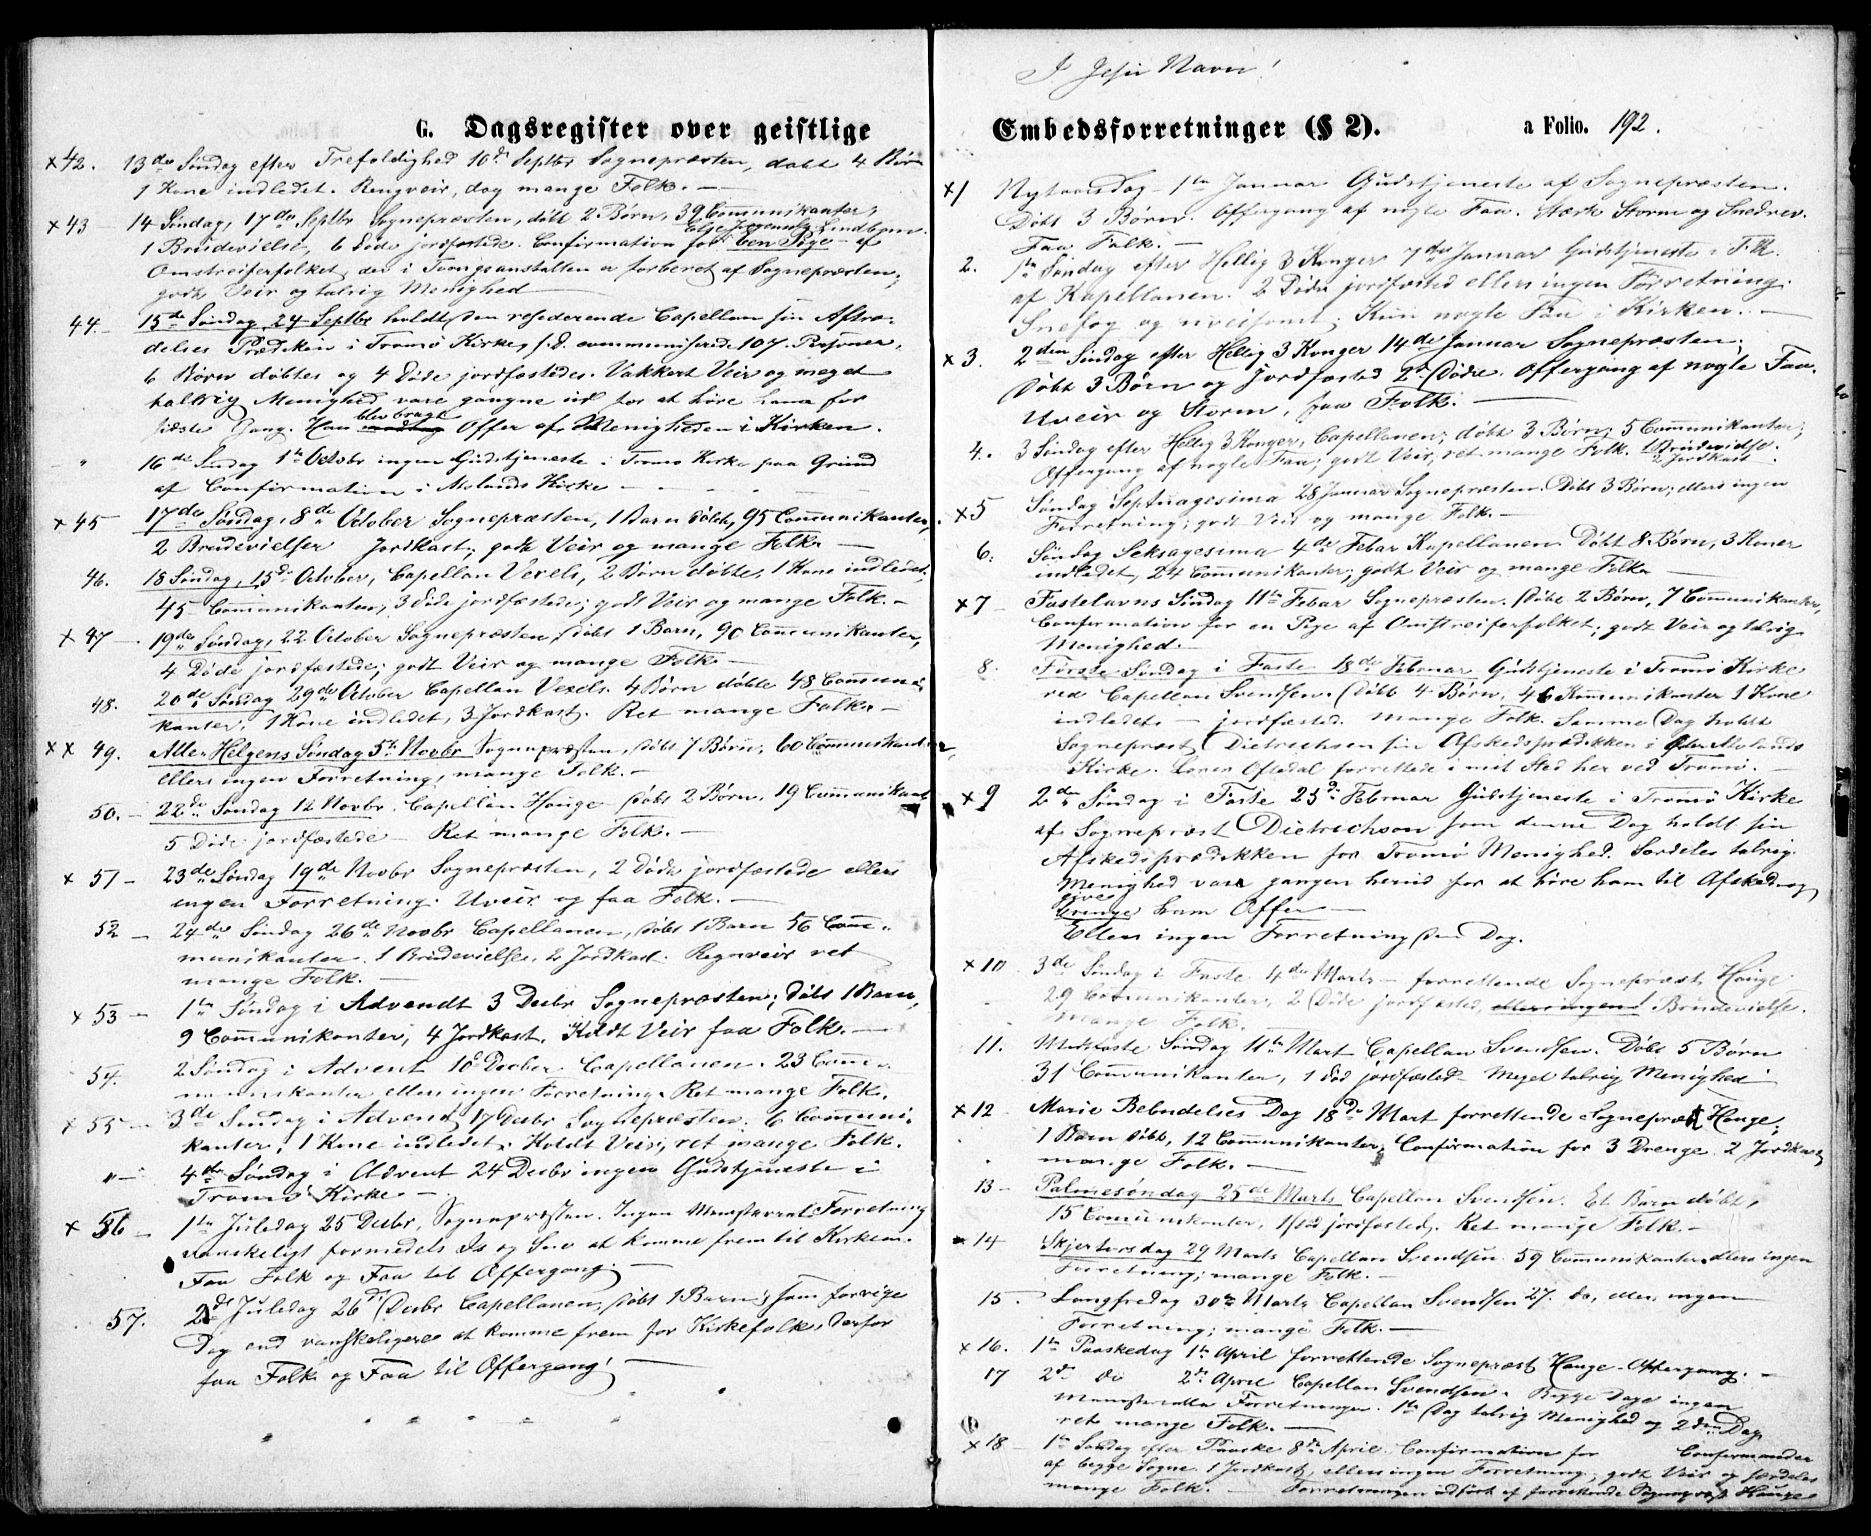 G. Dagsregister over geistlige
x 42. 13de Søndag efter Trefoldighed 10de Septbr Sognepræsten, døbt 4 Børn
1 Kone indledet. Rengveir, dog mange Folk. —
x 43 14 Søndag, 17de Septbr Sognepræsten, døbt 2 Børn, 39 Communikanter,
1 Brudevielse, 6 Døde jordfæstede. Confirmation for een Pige – af
Omstreiferfolket, der i Tvangsanstalten er forberet af Sognepræsten,
godt Veir og talrig Menighed —
44. 15de Søndag 24 Septbr holdt den residerende Capellan sin Aftræ-
delses Prædiken i Tromø Kirke, s.d. communiserede 107 Personer,
6 Børn døbtes og 4 Døde jordfæstedes. Vakkert Veir og meget
talrig Menighed vare gangne ud for at høre ham for
sidste Gang. Han blev bragt Offer af Menigheden i Kirken.
" 16de Søndag 1te Octobr ingen Gudstjeneste i Tromø Kirke paa Grund
af Confirmation i Molands Kirke —
x 45 17de Søndag, 8de October Sognepræsten, 1 Barn døbt, 95 Communikanter,
2 Brudevielser Jordkast; godt Veir og mange Folk —
46. 18 Søndag, 15de October, Capellan Vexels, 2 Børn døbte, 1 Kone indledet,
45 Communikanter, 3 Døde jordfæstede; godt Veir og mange Folk. —
x 47 — 19de Søndag, 22 October Sognepræsten, Døbt 1 Barn, 90 Communikanter,
4 Døde jordfæstede; godt Veir og mange Folk. —
48. 20de Søndag 29de October Capellan Vexels. 4 Børn døbte 48 Communi-
kanter, 1 Kone indledet, 3 Jordkast. Ret mange Folk. —
x x 49. Alle Helgens Søndag 5te Novbr Sognepræsten, Døbt 7 Børn, 60 Communikanter,
ellers ingen Forretning, mange Folk. —
50. — 22de Søndag 12 Novbr. Capellan Hauge Døbt 2 Børn, 19 Communikant
5 Døde jordfæstede — Ret mange Folk. —
x 51 — 23de Søndag 19de Novbr Sognepræsten, 2 Døde jordfæstede ellers
ingen Forretning. Uveir og faa Folk. —
52 — 24de Søndag 26de Novbr Capellanen, Døbt 1 Barn 56 Com-
munikanter. 1 Brudevielse, 2 Jordkast. Regnveir ret
mange Folk. —
x 53 — 1te Søndag i Advendt 3 Decbr Sognepræsten; Døbt 1 Barn,
9 Communikanter, 4 Jordkast. Koldt Veir faa Folk. —
54. 2 Søndag i Advent 10 Decber Capellanen. 23 Com-
munikanter ellers ingen Forretning. Ret mange Folk.
x 55 — 3de Søndag i Advend 17 Decbr Sognepræsten, 6 Communi-
kanter, 1 Kone indledet. Koldt Veir, ret mange Folk.
" — 4de Søndag i Advent 24 Decbr ingen Gudstjeneste i
Tromø Kirke —
x 56 — 1te Juledag 25 Decbr, Sognepræsten. Ingen Ministerial Forretning
vanskeligt formedels Is og Sne at komme frem til Kirken.
Faa Folk og Faa til Offergang. —
57. 2de Juledag 26de Decbr Capellanen, Døbt 1 Barn; som forrige
Dag end vanskeligere at komme frem for Kirkefolk, derfor
faa Folk og Faa til Offergang! —
I Jesu Navn!
Embedsforretninger (§ 2). a Folio. 192.
x 1 Nytaarsdag – 1te Januar Gudstjeneste af Sognepræsten.
Døbt 3 Børn. Offergang af nogle Faa. Stærk Storm og Snedrev.
Faa Folk. —
2. 1te Søndag efter Hellig 3 Konger 7de Januar Gudstjeneste i T.K.
af Kapellanen. 2 Døde jordfæsted ellers ingen Forretning.
Snefog og uveisomt. Kun nogle Faa i Kirken. —
x 3. 2den Søndag efter Hellig 3 Konger 14de Januar Sognepræsten,
Døbt 3 Børn og Jordfæsted 2de Døde. Offergang af nogle Faa.
Uveir og Storm, faa Folk. —
4. 3 Søndag efter Hellig 3 Konger, Capellanen; døbt 3 Børn; 5 Communikanter;
Offergang af nogle Faa, godt Veir, ret mange Folk. 1 Brudevielse. Jordkast.
x 5 Søndag Septuagesima 28 Januar Sognepræsten. Døbt 3 Børn; ellers ingen
Forretning; godt Veir og mange Folk. —
6. Søndag Seksagesima 4de Febar Kapellanen Døbt 8 Børn, 3 Koner
indledet, 24 Communikanter; godt Veir og mange Folk —
x 7 — Fastelavns Søndag 11te Febar Sognepræsten. Døbt 2 Børn, 7 Communikanter,
Confirmation for en Pige af Omstreiferfolket; godt Veir og talrig
Menighed. —
8. Første Søndag i Faste 18de Februar Gudstjeneste i Tromø Kirke
ved Capellan Svendsen. Døbt 4 Børn, 46 Kommunikanter 1 Kone
indledet – jordfæsted. mange Folk. Samme Dag holdt
Sognepræst Dietrichsen sin Afskedsprædikken i Molands
Kirke. Oftedal forrettede i mit Sted her ved Tromø. —
x 9 2de Søndag i Faste 25de Februar Gudstjeneste i Tromø Kirke
af Sognepræst Dietrichson som denne Dag holdt sin
Afskedsprædikken for Tromø Menighed. Særdeles talrig
Menighed vare gangen herud for at høre ham til Afsked og
give ham Offer —
Ellers ingen Forretning den Dag.
x 10 3de Søndag i Faste 4de Marts — forrettende Sognepræst Hauge
29 Communikanter, 2 Døde jordfæsted, ellers ingen Brudevielse.
mange Folk.
11. Midfaste Søndag 11te Mart Capellan Svendsen. Døbt 5 Børn
31 Communikanter, 1 død jordfæsted – Meget talrig Menighed
x 12 — Marie Bebudelses Dag 18de Mart forrettende Sognepræst Hauge;
1 Barn døbt, 12 Communikanter, Confirmation for 3 Drenge 2 Jordkast
mange Folk. —
13 — Palmesøndag 25de Marts Capellan Svendsen. Et Barn døbt,
15 Communikanter, jordfæsted. Ret mange Folk. —
x 14 Skjertorsdag 29 Marts Capellan Svendsen 59 Communikanter ellers ingen
Forretning; mange Folk. —
15. Langfredag 30te Marts Capellan Svendsen 27. do, ellers ingen
Forretning; mange Folk. —
x 16. 1te Paaskedag 1te April forrettende Sognepræst Hauge – Offergang. —
17 2de do 2de April Capellan Svendsen. Begge Dage ingen
ministerielle Forretninger. 1te Dag talrig Menighed og 2den Dag
ret mange Folk. —
x 18 — 1te Søndag efter Paaske 8de April. Confirmation for Confirmander
af begge Sogne. 1 Jordkast, ellers ingen Forretning; godt Veir og særdeles
mange Folk. — Forretningen udført af forrettende Sognepræst Hauge